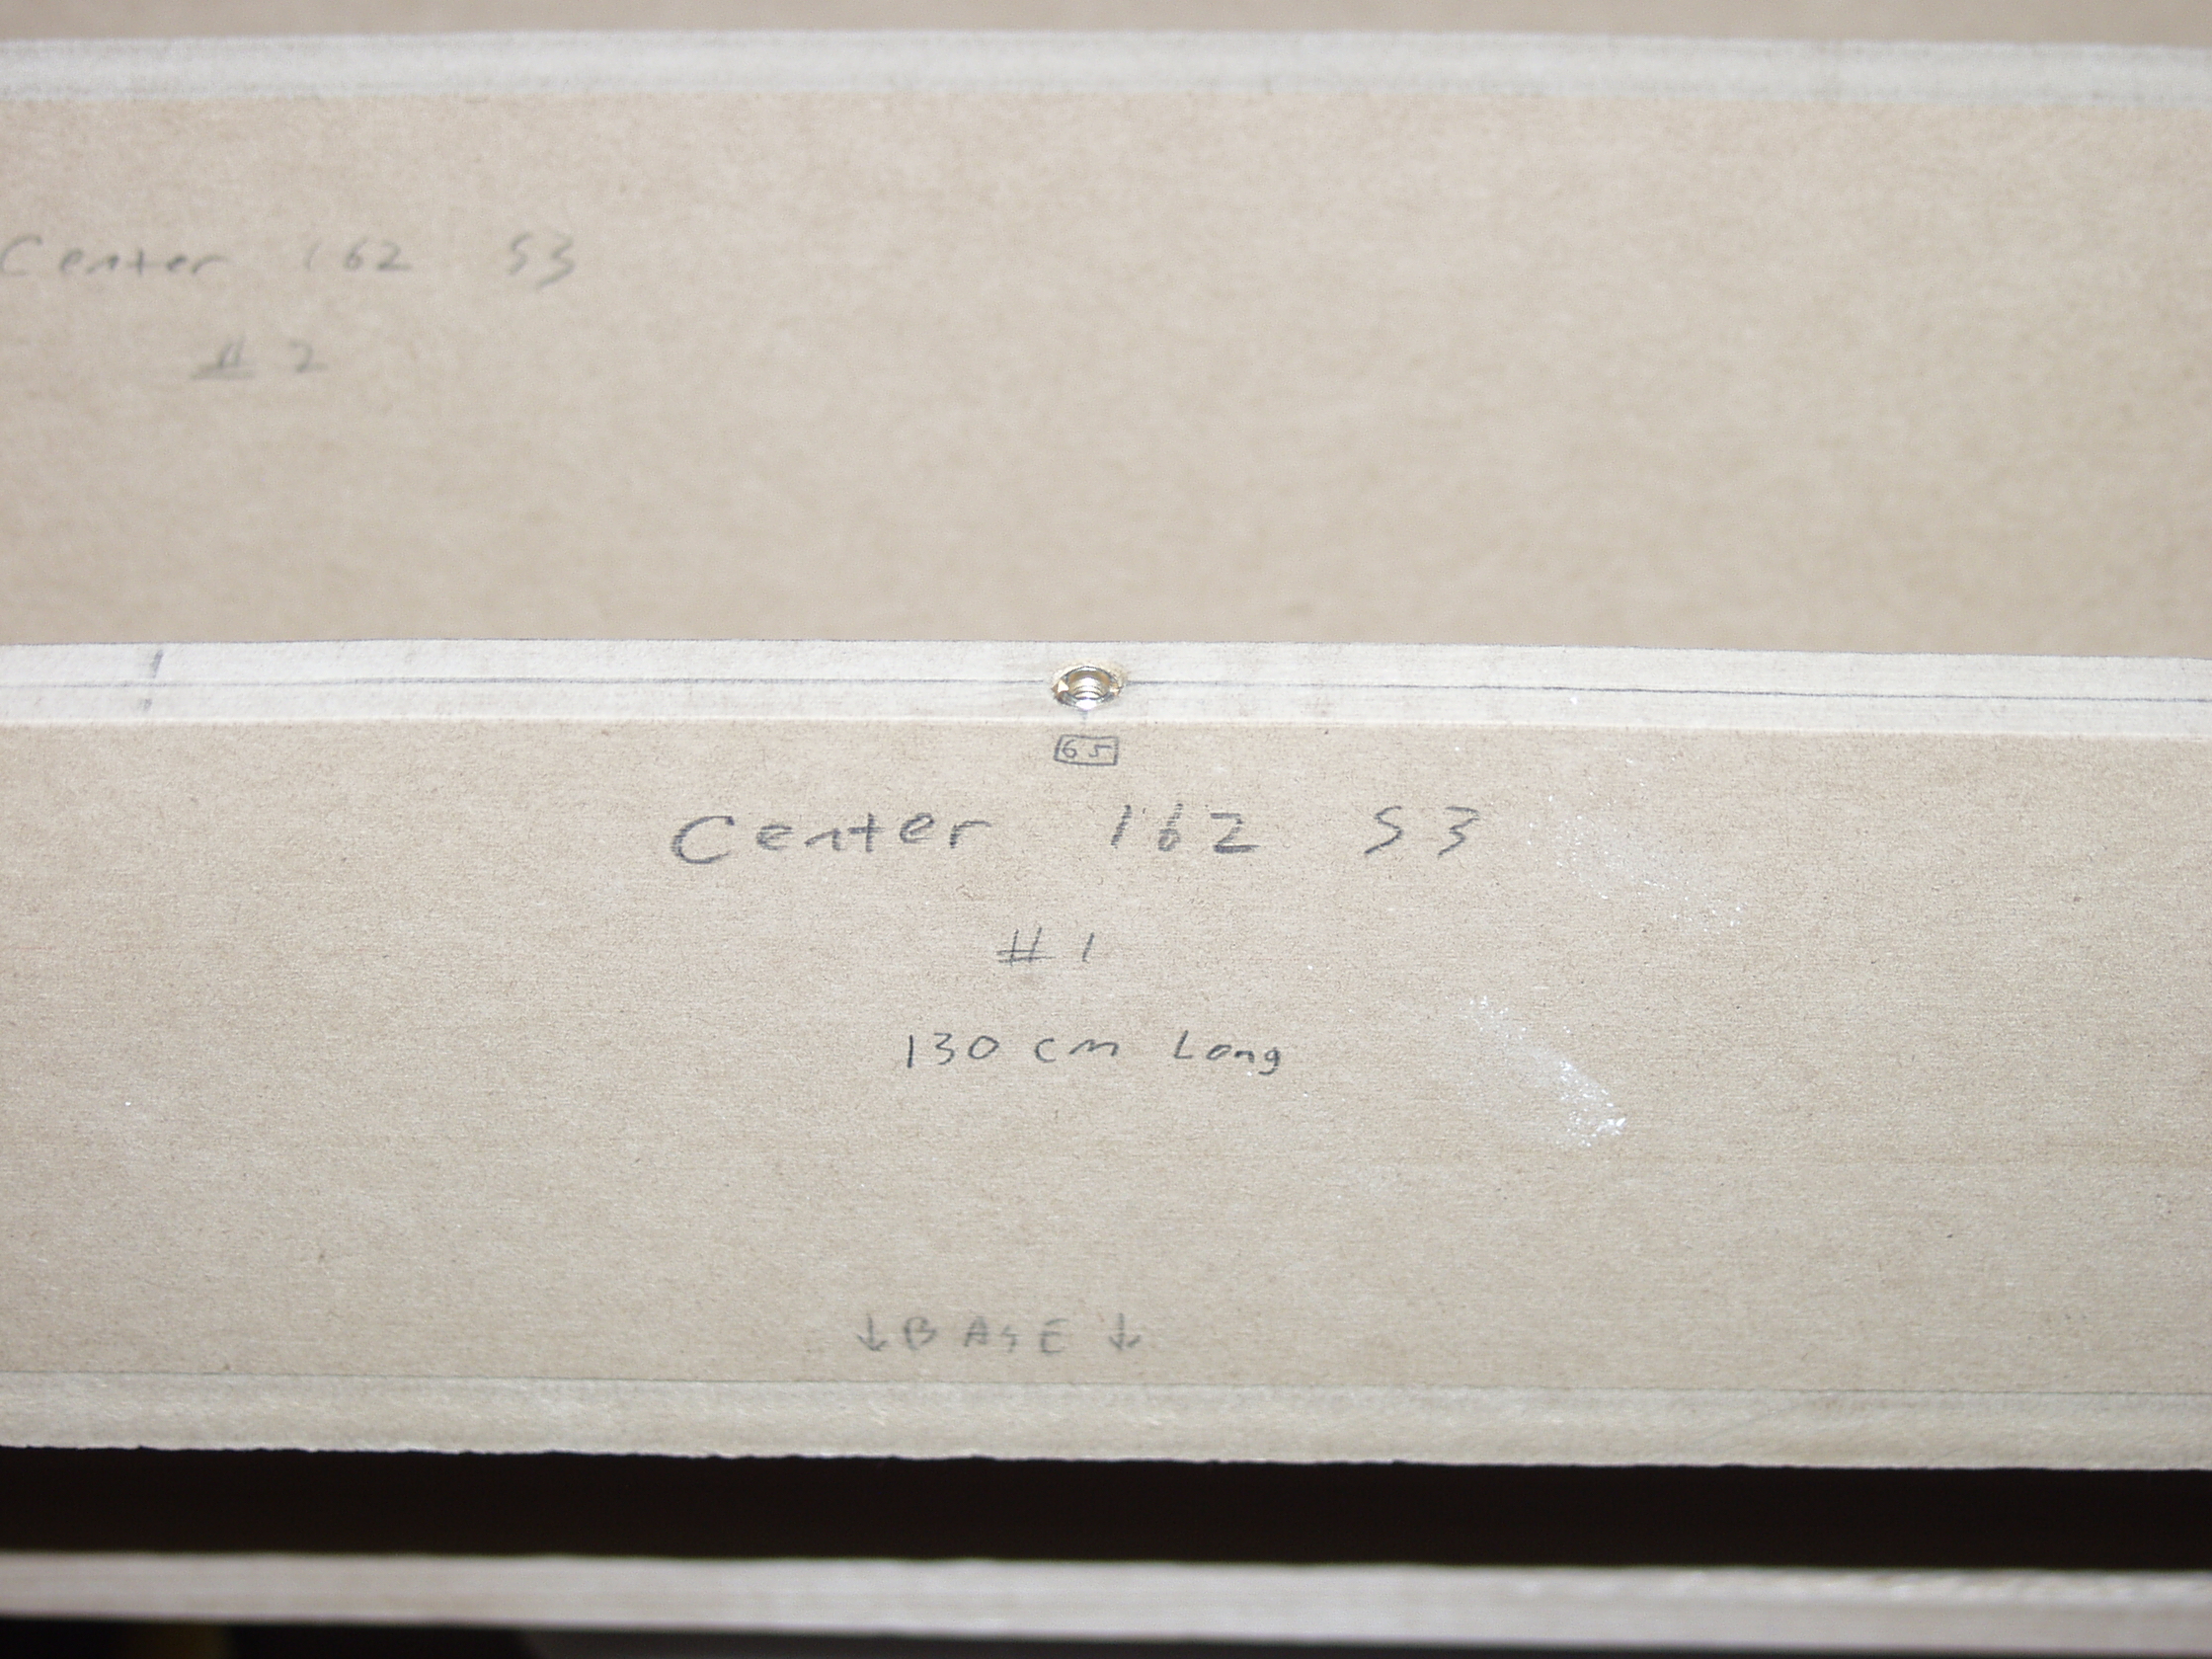 Center 162 S3
# 2
65
Center 162 S3
# 1
130 cm Long
↓ BASE ↓